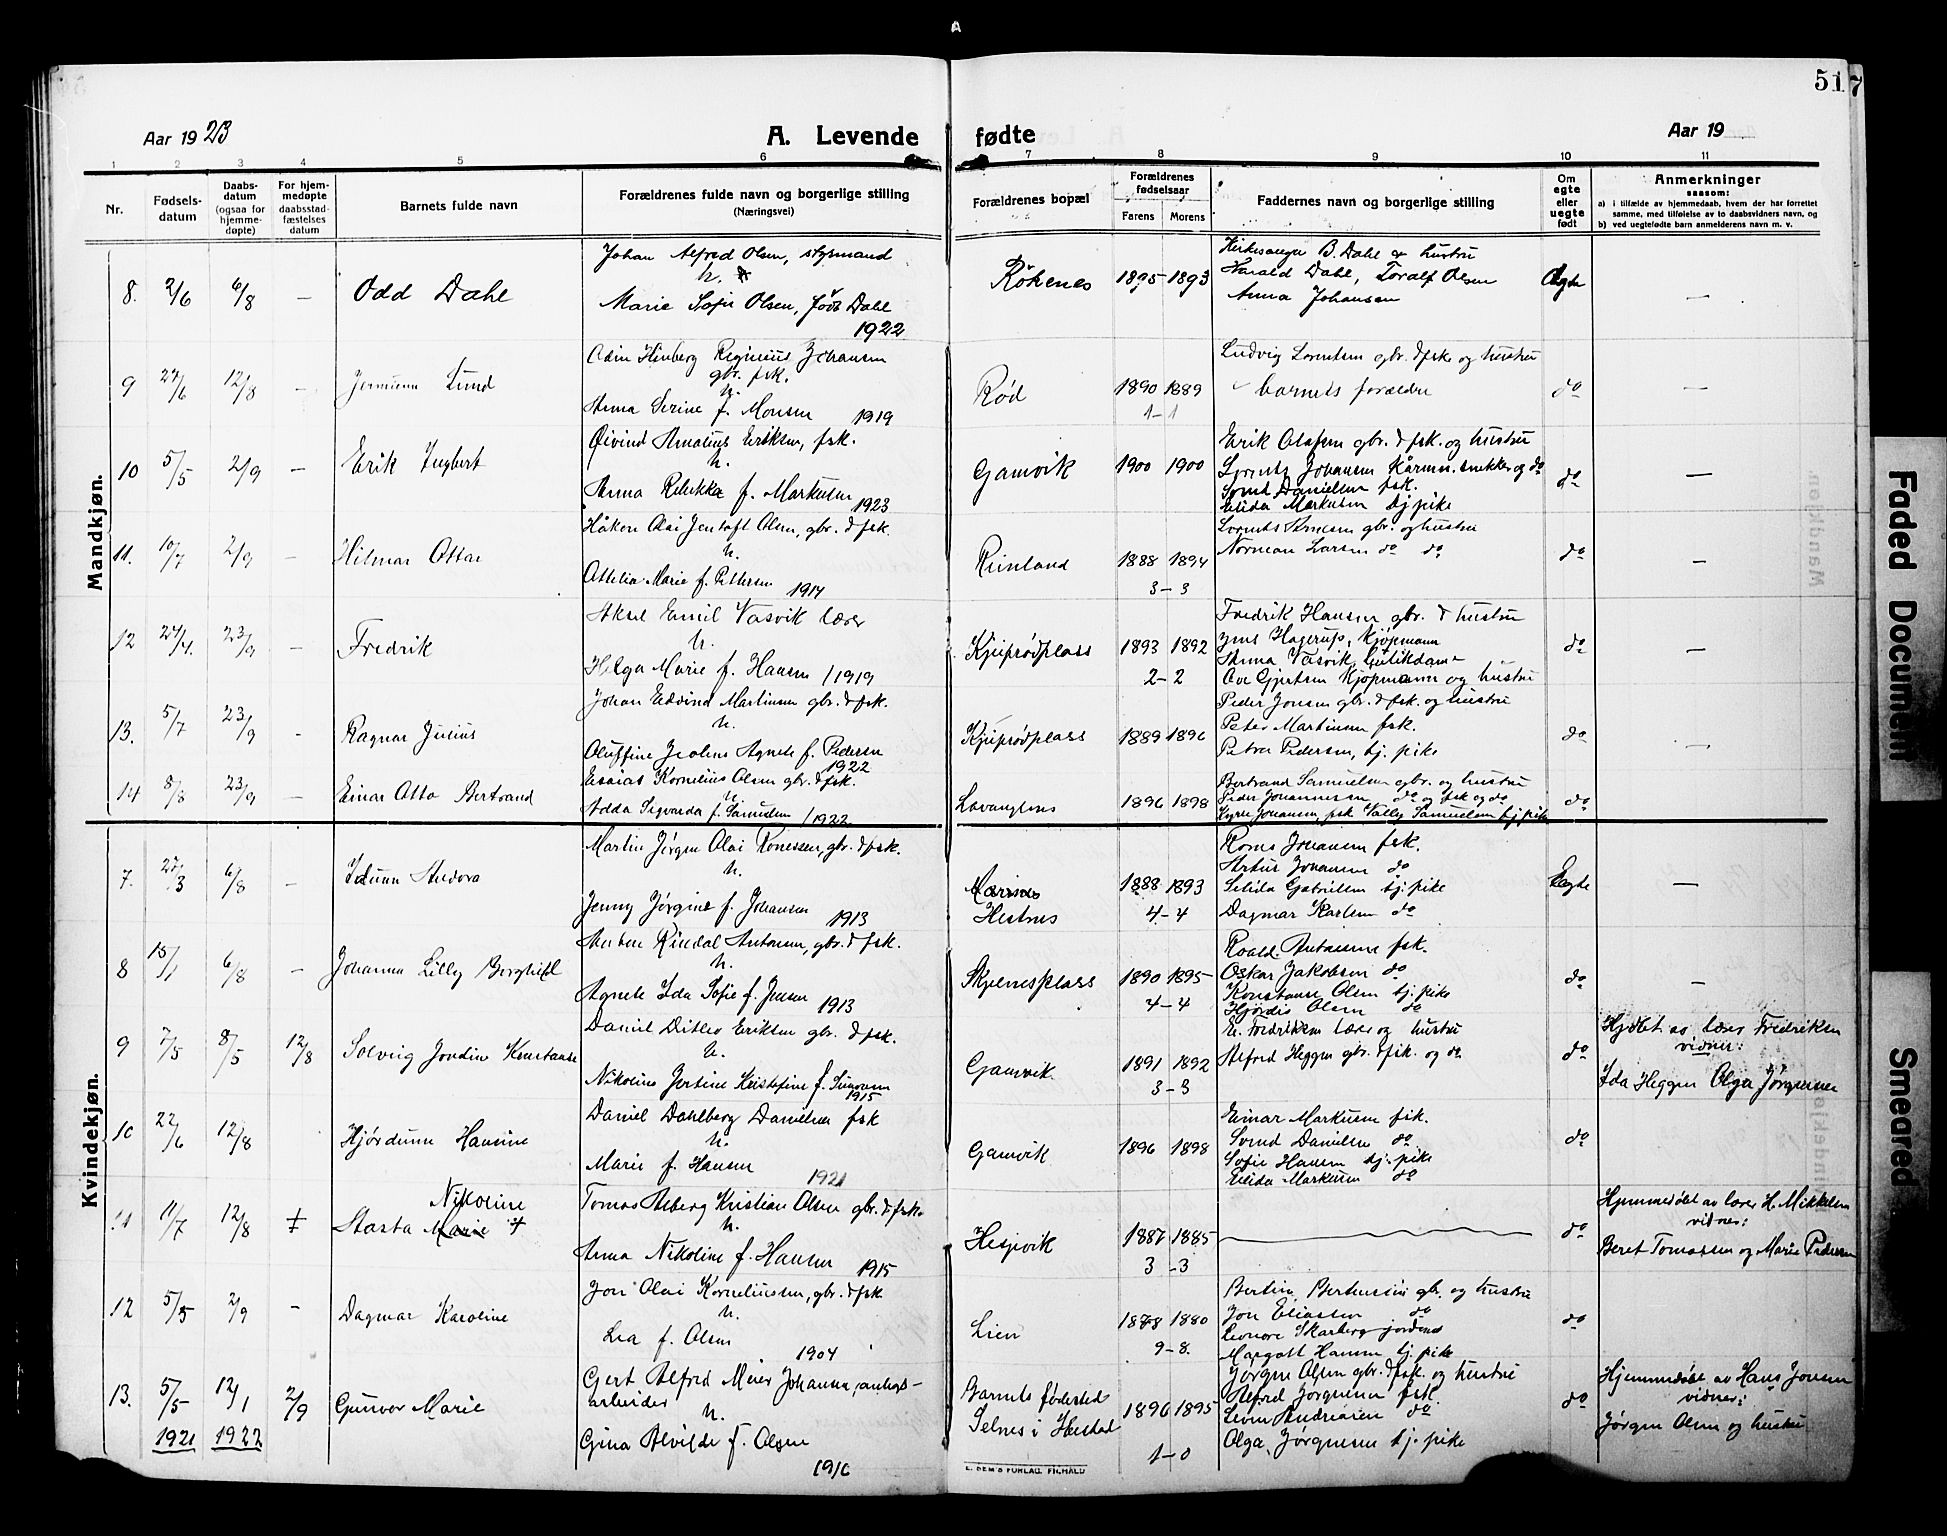 A
517
Aar 1923
A. Levende fødte
Aar 19
1 2 3 4 5 6 7 8 9 10 11
Nr.
Fødsels-
datum
Daabs-
datum
(ogsaa for
hjemme-
døpte)
For hjem-
medøpte
daabsstad-
fæstelses
datum
Barnets fulde navn
Forældrenes fulde navn og borgerlige stilling
(Næringsvei)
Forældrenes bopæl
Forældrenes
fødselsaar
Farens Morens
Faddernes navn og borgerlige stilling
Om
egte
eller
uegte
født
Anmerkninger
saasom:
a) i tilfælde av hjemmedaab, hvem der har forrettet
samme, med tilføielse av to daabsvidners navn, og
b) ved uegtefødte barn anmelderens navn m. v.
Mandkjøn.
8. 2/6 6/8 — Odd Dahl
Johan Alfred Olsen, styrmand
h.
Marie Sofie Olsen, født Dahl
1922
Røkenes 1895 - 1893
Kirkesanger B. Dahl og hustru
Harald Dahl, Toralf Olsen
Anna Johansen
Egte —
9 27/6 12/8 — Lund
Odin Reginius Johansen
gbr. fsk.
h.
Anna Serine f. Monsen 1919
Rød 1890 1889
1 - 1
Ludvig Lorentsen gbr. & fsk. og hustru
barnets forældre
do —
10 5/5 2/9 — Erik Ingbert
Øivind Amatius Eriksen, fsk.
h.
Anna Rebekka f. Markusen 1923
Gamvik 1900 1900
Erik Olafsen gbr. & fsk. og hustru
Johansen snekker og do
Svend Danielsen fsk.
Elida Markusen tj. pike
do —
11. 10/7 2/9 — Hilmar Ottar
Håkon Olai Jentoft Olsen, gbr. & fsk.
h.
Otelia Marie f. Pettersen 1914
Reinland 1888 1894
3 - 3
Lorents Arnesen gbr. og hustru
Norman Larsen do do
do —
12 24/4. 23/9 — Fredrik
Aksel Emil Vasvik lærer
h.
Helga Marie f. Hansen /1919
Kjuprødplass 1893 1892
2 - 2
Fredrik Hansen gbr. & hustru
Jens Hagerup, Kjøpmann
Anna Vasvik, Butikdame
Ove Gjertsen Kjøpmann og hustru
do —
13. 5/7 23/9 - Ragnar Julius
Johan Edvind Martinsen gbr. & fsk.
h.
Oluffine Jentine Agnete f. Pedersen
1922
Kjuprødplass 1889 1896
Peder Jensen gbr. & fsk. og hustru
Peter Martinsen fsk.
Petra Pedersen, tj. pike
do —
14 8/8 23/9 — Einar Otto Bertrand
Esaias Kornelius Olsen gbr. & fsk.
h
Adda Sigvarda f. Samuelsen /1922
Lavangnes 1896 1898
Bertrand Samuelsen gbr. og hustru
Peder Johannessen do og fsk og do
Johansen, fsk Vally Samuelsen tj. pike
do
Kvindekjøn.
7. 27/3 6/8 — Idunn Andora
Martin Jørgen Olai Tønessen, gbr. & fsk.
h.
Jenny Jørgine f. Johansen 1913
Hestnes 1888 1893
4 - 4
Roms Johansen fsk.
Artur Johansen do
Selida Gabrielsen tj. pike
Dagmar Karlsen do
Egte —
8 15/1 6/8 — Johanna Lilly Borghild
Anton Rindal Antonsen, gbr. & fsk.
h.
Agnete Ida Sofie f. Jensen 1913
Skjelnesplass 1890 1895
4 - 4
Roald Antonsen fsk.
Oskar Jakobsen do
Konstanse Olsen tj. pike
Hjørdis Olsen do
do —
9 7/5 8/5 12/8 Solveig Jondin Konstanse
Daniel Ditlev Eriksen gbr. & fsk.
h.
Nikoline Jertine Kristofine f. Simonsen
1915
Gamvik 1891 1892
3 - 3
E. Fredriksen lærer og hustru
Alfred Heggen gbr. & fsk. og do
do
Hjdøbt av lærer Fredriksen
vidner:
Ida Heggen Olga Jørgensen
10 22/6 12/8 Hjørdunn Hansine
Daniel Dahlberg Danielsen fsk
h.
Marie f. Hansen 1921
Gamvik 1896 1898
Einar Markusen fsk.
Svend Danielsen do
Sofie Hansen tj. pike
Elida Markusen do
do
11 11/7 12/8 ‡ Nikoline
Stasta Marie ‡
Tomas Asberg Kristian Olsen gbr. & fsk.
h.
Anna Nikoline f. Hansen 1915
Hesjevik 1887 1885
3 - 3
do
Hjemmedøbt av lærer H. Mikkelsen
vidner:
Beret Tomassen og Marie Pedersen
12 5/5 2/9 — Dagmar Karoline
Jon Olai Korneliussen, gbr. & fsk
h.
Lea f. Olsen
1904
Lien 1878 1880
9 - 8.
Bertin Berthussen gbr. og hustru
Jon Eliassen do
Leonore Skarberg jordmor
Margott Hansen tj. pike
do
13. 5/5 12/1 2/9 Gunvor Marie
1921 1922
Gert Alfred Meier Johansen, anlegs-
arbeider
h.
Gina Alvilde f. Olsen
1916
Barnets fødested
Selnes i Harstad 1896 1895
1 - 0
Jørgen Olsen gbr. & fsk. og hustru
Alfred Jørgensen fsk.
Leon Andreasen do
Olga Jørgensen tj. pike
do
Hjemmedøbt av Hans Jensen
vidner:
Jørgen Olsen og hustru
E. SEM'S FORLAG, FR.HALD
Faded Document
Smeared